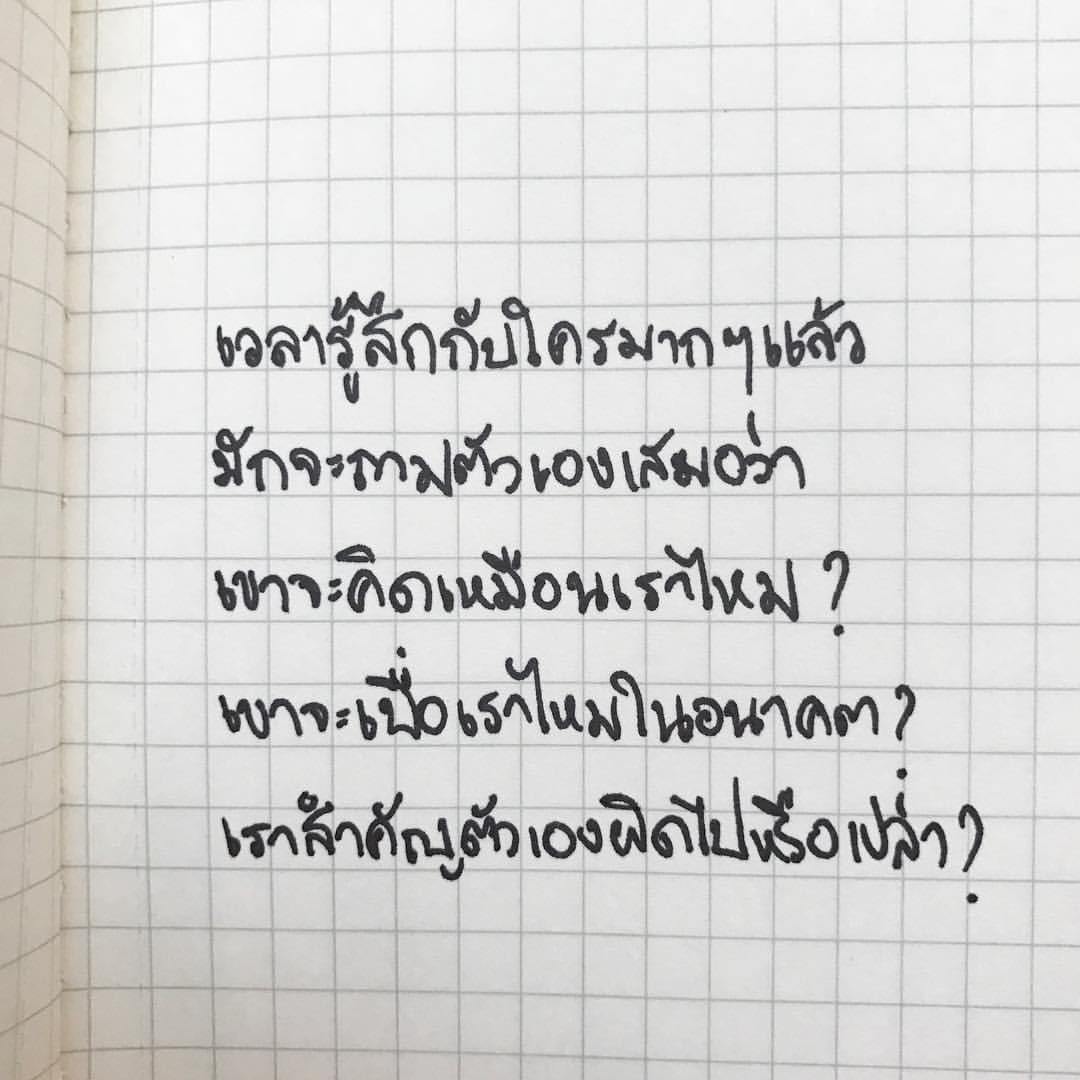 เวลารู้สึกกับใครมากๆแล้ว
มักจะถามตัวเองเสมอว่า
เขาจะคิดเหมือนเราไหม?
เขาจะเบื่อเราไหมในอนาคต?
เราสำคัญตัวเองผิดไปหรือเปล่า?